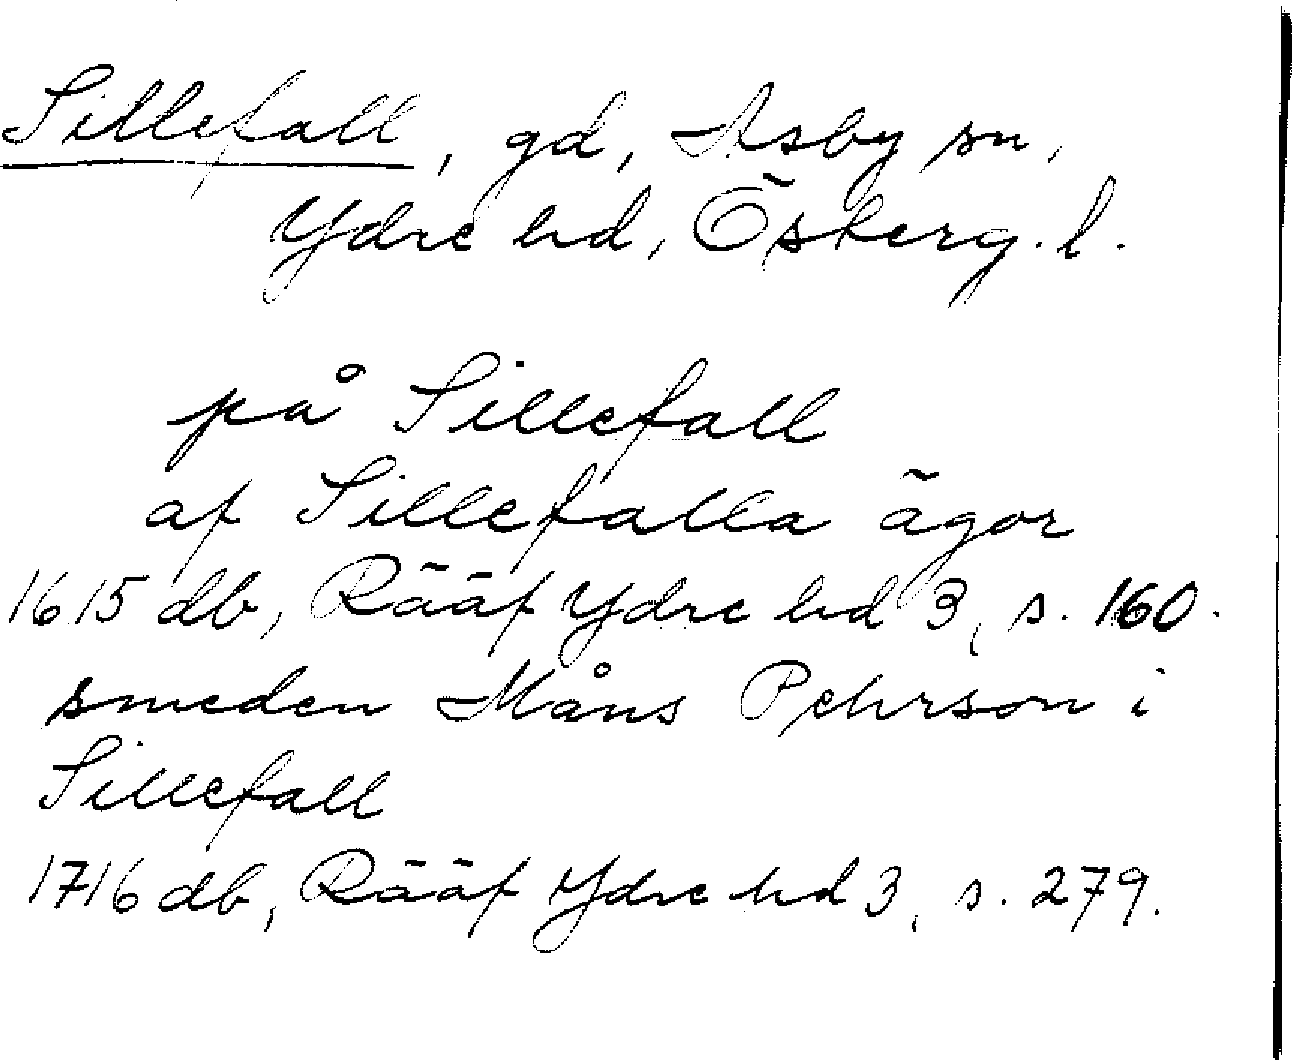 Sillefall, gd, Asby sn,
Ydre hd, Österg. l.
på Sillefall
af Sillefalla ägor
1615 db, Rääf Ydre hd 3, s. 160.
smeden Måns Pehrson i
Sillefall
1716 db, Rääf Ydre hd 3, s. 279.